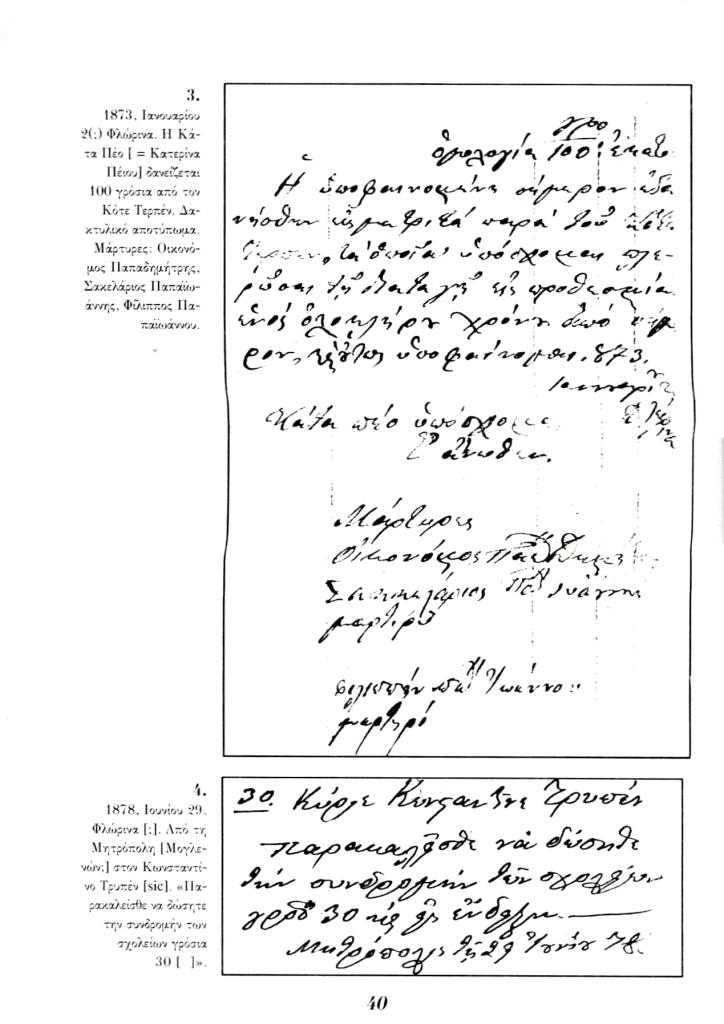 3.
1873, Ιανουαρίου
2(;) Φλώρινα. Η Κά-
τα Πέο [ = Κατερίνα
Πέιου] δανείζεται
100 γρόσια από τον
Κότε Τερπέν. Δα-
κτυλικό αποτύπωμα.
Μάρτυρες: Οικονό-
μος Παπαδημήτρης,
Σακελάριος Παπαϊω-
άννης, Φίλιππος Πα-
παϊωάννου.
ὁμολογία 100: ἑκατο
Ἡ ὑποφαινομένη σήμερον ἐδα
νήσθην παρὰ τοῦ Κότε
Τερπεν, τὰ ὁποῖα ὑπόσχομαι πλε-
ρώσαι εἰς προθεσμία
ἑνὸς ὁλοκλήρου χρόνου ἀπὸ σήμε
ρον, ὑποφαίνομαι. 873.
Κάτα πέο ὑπόσχομε
ἄνωθεν.
Μάρτυρες
Οἰκονόμος
Σακελάριος Ἰωάννης
μαρτιρῶ
Ἰωάννου
μαρτιρό
4.
1878, Ιουνίου 29.
Φλώρινα [;]. Από τη
Μητρόπολη [Μογλε-
νών;] στον Κωνσταντί-
νο Τρυπέν [sic]. «Πα-
ρακαλείσθε να δώσητε
την συνδρομήν των
σχολείων γρόσια
30 [ ]».
30. Κύριε Κονσταντῖνε Τρυπέν
παρακαλῆσθε νὰ δώσηθε
θὴν συνδρομὴν θῶν σχολείων
30
Μηθρόπολις θῇ 29 Ἰουνίου 78.
40